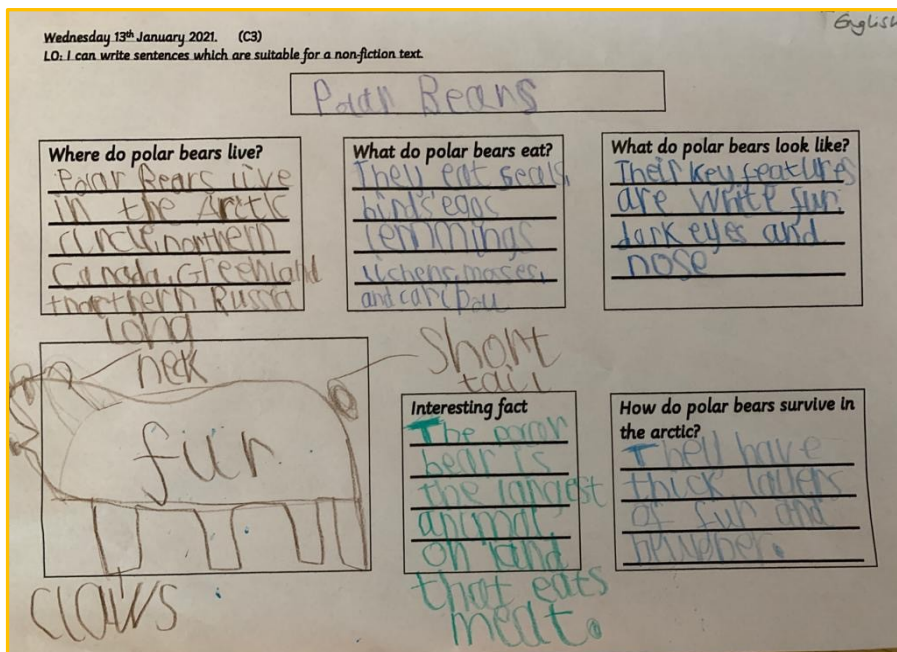 English
Wednesday 13th January 2021. (C3)
LO: I can write sentences which are suitable for a non-fiction text.
Polar Bears
Where do polar bears live?
Polar Bears live
in the Arctic
circle, northern
Canada, Greenland
+northern Russia
What do polar bears eat?
They eat seals,
bird's eggs
lemmings
lichens, mosses,
and caribou
What do polar bears look like?
Their key features
are white fur,
dark eyes and
nose
long
neck
short
tail
fur
claws
Interesting fact
The polar
bear is
the largest
animal
on land
that eats
meat.
How do polar bears survive in
the arctic?
They have
thick layers
of fur and